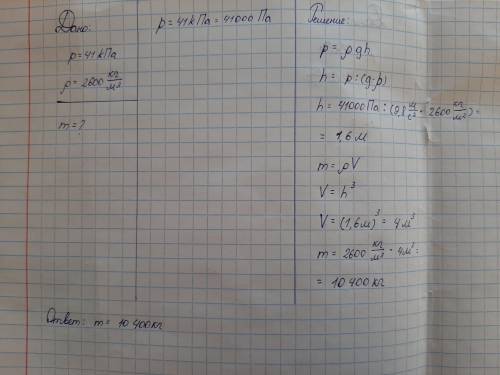 Дано:
p = 41 кПа
ρ = 2600 кг/м³
m = ?
p = 41 кПа = 41000 Па
Решение:
p = ρgh
h = p : (g·ρ)
h = 41000 Па : (9,8 м/с² · 2600 кг/м³) =
= 1,6 м
m = ρV
V = h³
V = (1,6 м)³ = 4 м³
m = 2600 кг/м³ · 4 м³ =
= 10 400 кг
Ответ: m = 10 400 кг